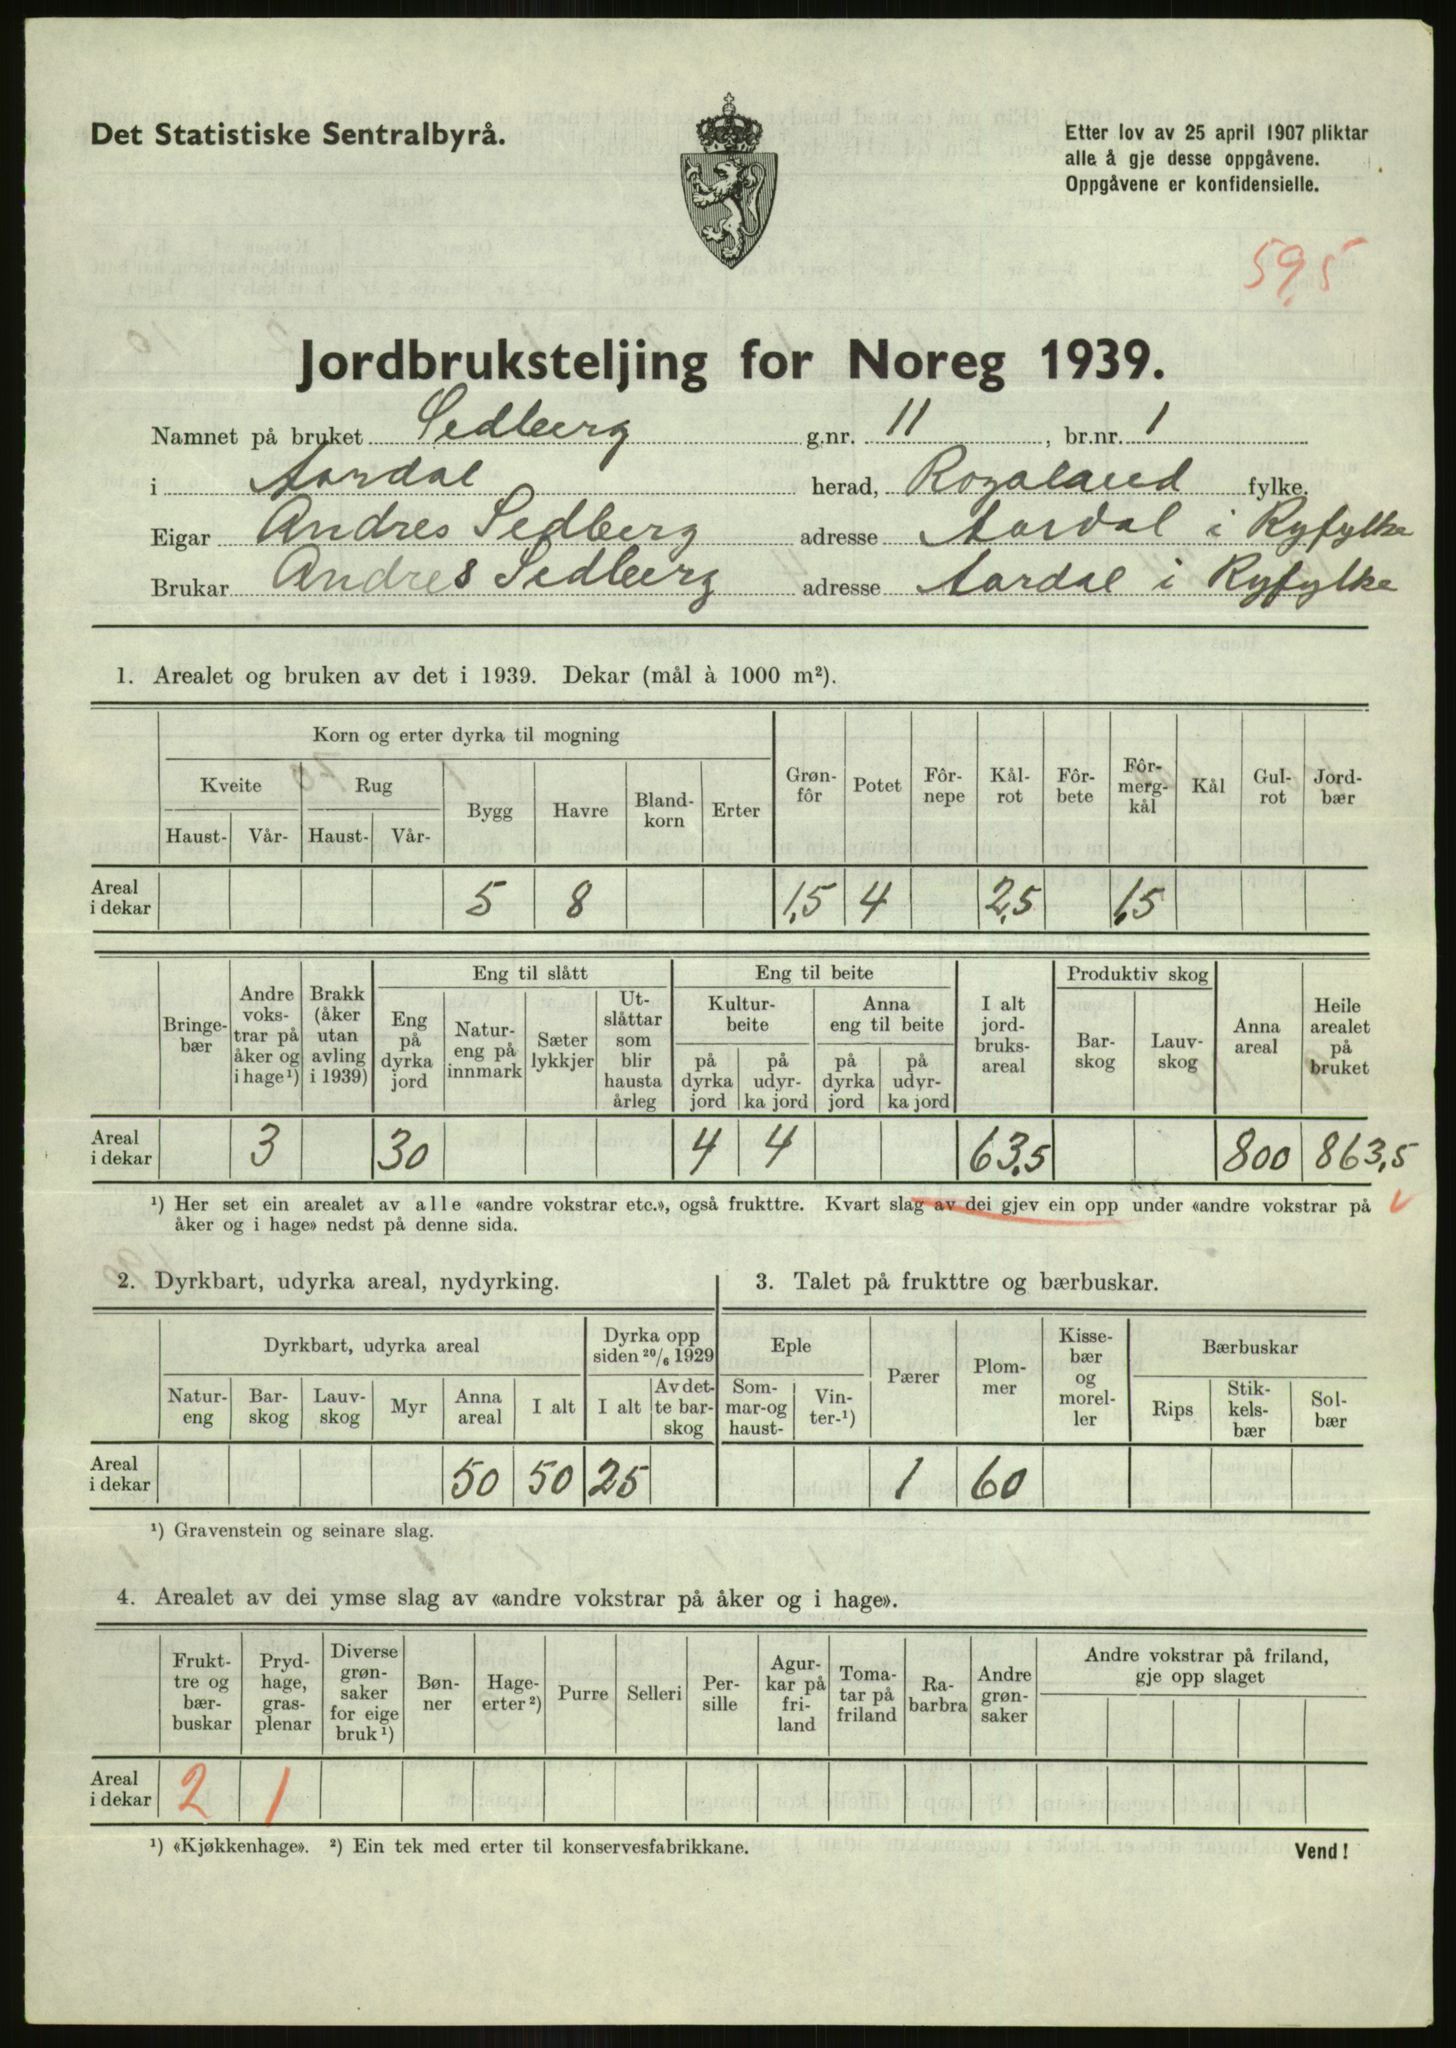 Det Statistiske Sentralbyrå.
Etter lov av 25 april 1907 pliktar
alle å gje desse oppgåvene.
Oppgåvene er konfidensielle.
59,5
Jordbruksteljing for Noreg 1939.
Namnet på bruket Sedberg g.nr. 11, br.nr. 1
i Aardal herad, Rogaland fylke.
Eigar Andres Sedberg adresse Aardal i Ryfylke
Brukar Andres Sedberg adresse Aardal i Ryfylke
1. Arealet og bruken av det i 1939. Dekar (mål à 1000 m²).
Korn og erter dyrka til mogning
Kveite Rug Bygg Havre Bland-korn Erter Grøn-fôr Potet Fôr-nepe Kål-rot Fôr-bete Fôr-merg-kål Kål Gul-rot Jord-bær
Haust- Vår- Haust- Vår-
Areal i dekar 5 8 1,5 4 2,5 1,5
Eng til slått Eng til beite Produktiv skog
Bringe-bær Andre voks-trar på åker og i hage¹) Brakk (åker utan avling i 1939) Eng på dyrka jord Natur-eng på innmark Sæter lykkjer Ut-slåttar som blir hausta årleg Kultur-beite Anna eng til beite I alt jord-bruks-areal Bar-skog Lauv-skog Anna areal Heile arealet på bruket
på dyrka jord på udyr-ka jord på dyrka jord på udyr-ka jord
Areal i dekar 3 30 4 4 63,5 800 863,5
¹) Her set ein arealet av alle «andre vokstrar etc.», også frukttre. Kvart slag av dei gjev ein opp under «andre vokstrar på
åker og i hage» nedst på denne sida.
2. Dyrkbart, udyrka areal, nydyrking.
Dyrkbart, udyrka areal Dyrka opp siden 20/6 1929
Natur-eng Bar-skog Lauv-skog Myr Anna areal I alt I alt Av det-te bar-skog
Areal i dekar 50 50 25
¹) Gravenstein og seinare slag.
3. Talet på frukttre og bærbuskar.
Eple Pærer Plom-mer Kisse-bær og morel-ler Bærbuskar
Som-mar-og haust- Vin-ter-¹) Rips Stik-kels-bær Sol-bær
1 60
4. Arealet av dei ymse slag av «andre vokstrar på åker og i hage».
Frukt-tre og bær-buskar Pryd-hage, gras-plenar Diverse grøn-saker for eige bruk¹) Bøn-ner Hage-erter²) Purre Selleri Per-sille Agur-kar på fri-land Toma-tar på friland Ra-barbra Andre grøn-saker Andre vokstrar på friland, gje opp slaget
Areal i dekar 2 1
¹) «Kjøkkenhage». ²) Ein tek med erter til konservesfabrikkane.
Vend!